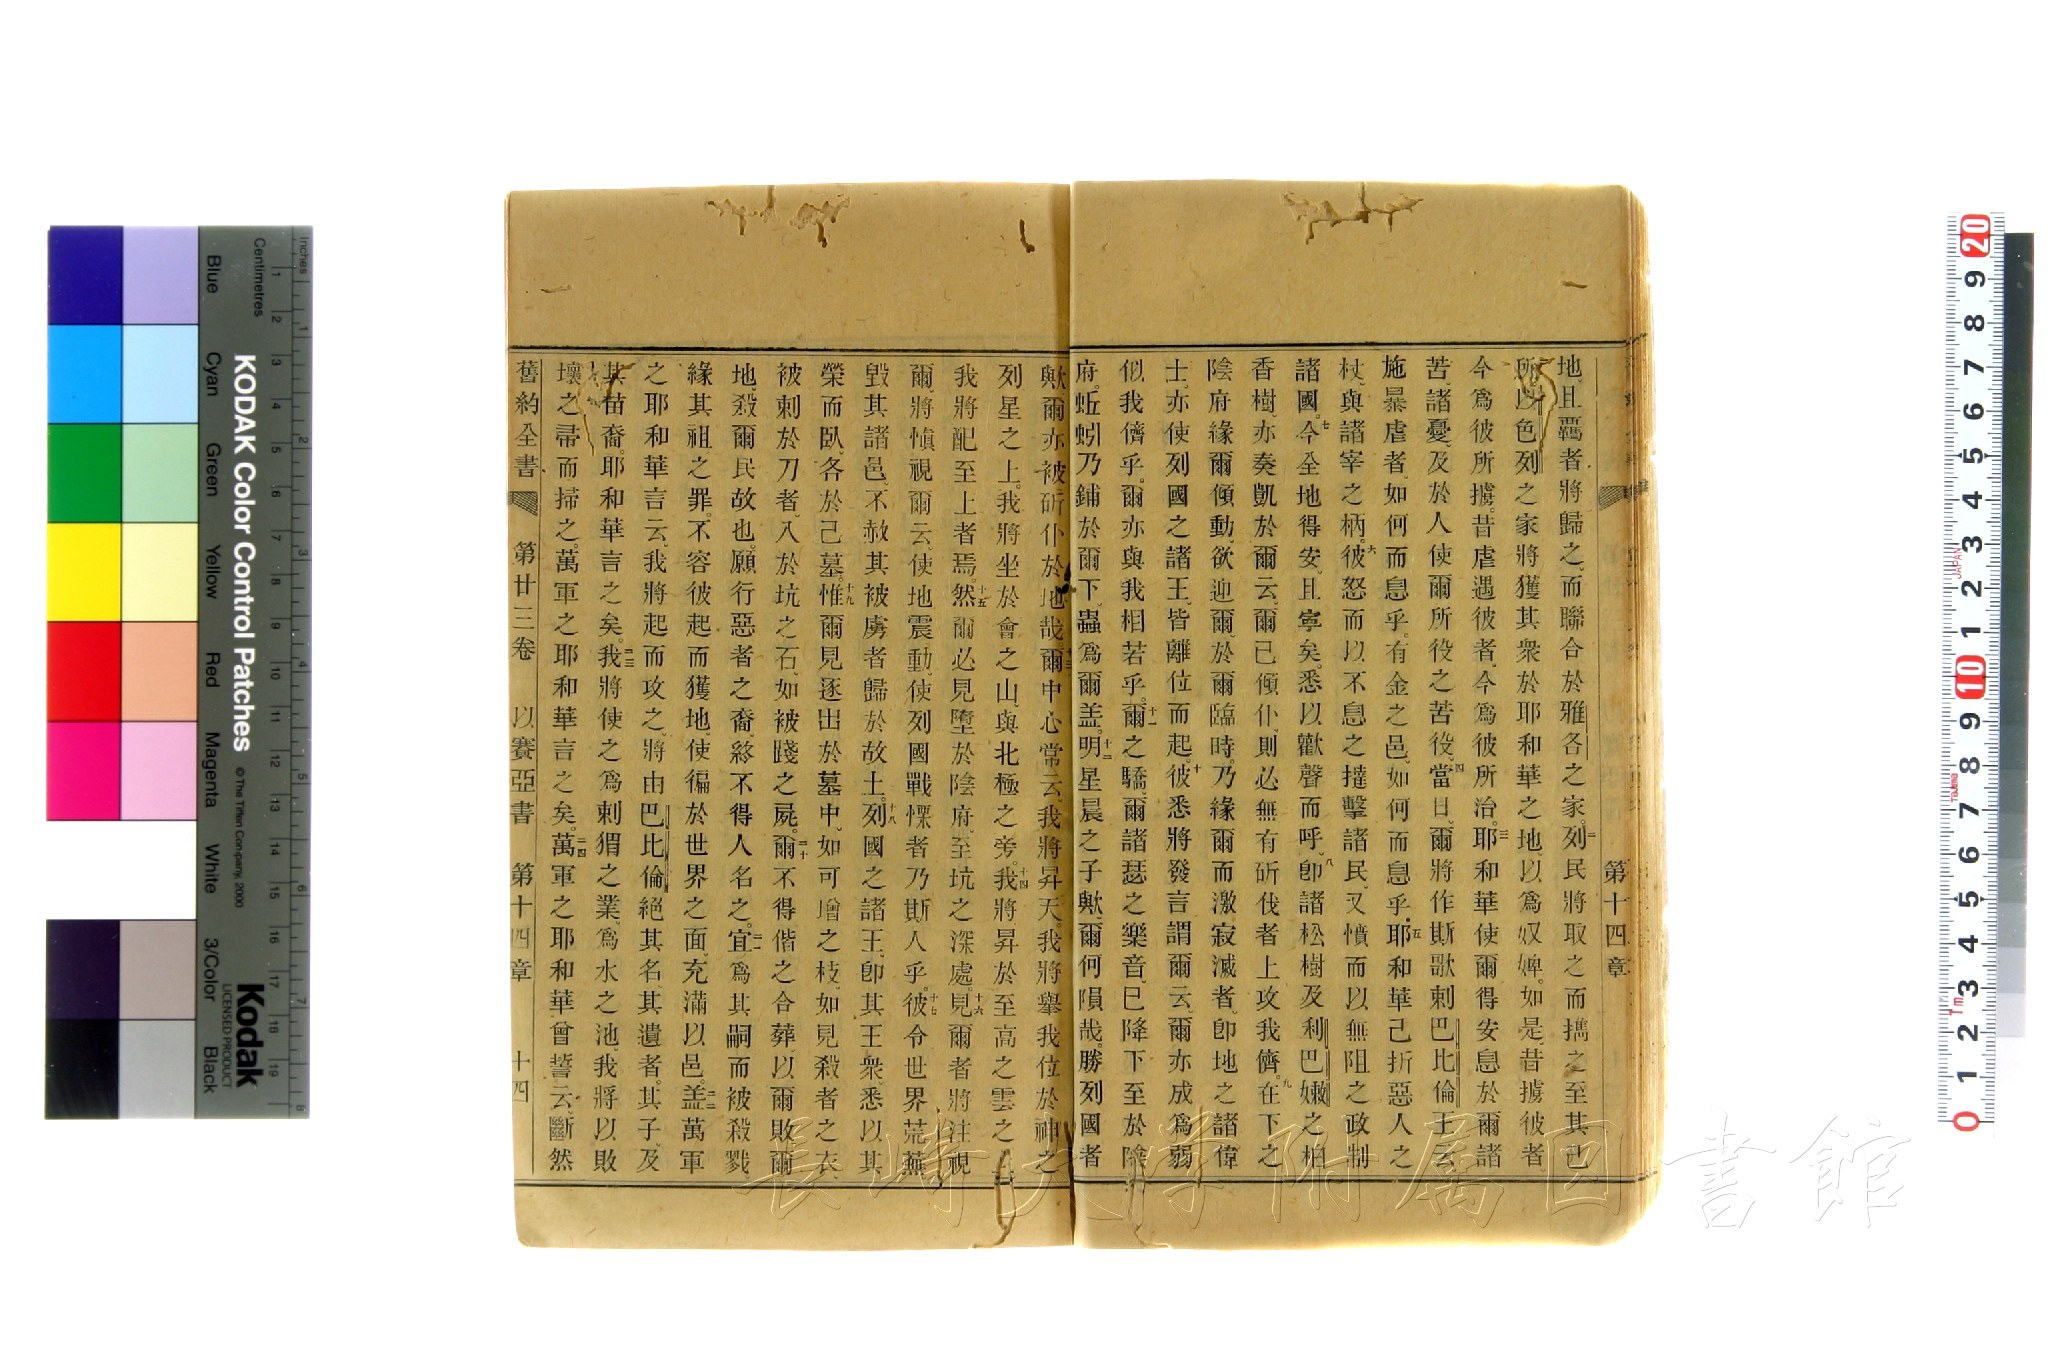 第十四章
地、且覊者將歸之、而聯合於雅各之家。二列民將取之而攜之至其己
所、以色列之家將獲其衆於耶和華之地、以爲奴婢。如是昔擄彼者
今爲彼所擄。昔虐遇彼者、今爲彼所治。三耶和華使爾得安息於爾諸
苦、諸憂、及於人使爾所役之苦役。四當日、爾將作斯歌刺巴比倫王云、
施暴虐者、如何而息乎。有金之邑、如何而息乎。五耶和華己折惡人之
杖、與諸宰之柄。六彼怒而以不息之撻擊諸民、又憤而以無阻之政制
諸國。七今全地得安、且寧矣。悉以歡聲而呼。八卽諸松樹及利巴嫩之柏
香樹、亦奏凱於爾云、爾已傾仆、則必無有斫伐者上攻我儕。九在下之
陰府緣爾傾動、欲迎爾於爾臨時。乃緣爾而激寂滅者。卽地之諸偉
士、亦使列國之諸王、皆離位而起。十彼悉將發言謂爾云、爾亦成爲弱
似我儕乎。爾亦與我相若乎。十一爾之驕、爾諸瑟之樂音、已降下至於陰
府。蚯蚓乃鋪於爾下、蟲爲爾蓋。十二明星晨之子歟、爾何隕哉。勝列國者
歟、爾亦被斫仆於地哉。十三爾中心常云、我將昇天。我將舉我位於神之
列星之上。我將坐於會之山、與北極之旁。十四我將昇於至高之雲之上
我將配至上者焉。十五然爾必見墮於陰府、至坑之深處。十六見爾者將注視
爾、將愼視爾云、使地震動、使列國戰慄者乃斯人乎。十七彼令世界荒蕪
毀其諸邑、不赦其被虜者歸於故土。十八列國之諸王、卽其王衆、悉以其
榮而臥、各於己墓。十九惟爾見逐出於墓中、如可增之枝、如見殺者之衣、
被刺於刀者、入於坑之石、如被踐之屍。二十爾不得偕之合葬、以爾敗爾
地、殺爾民故也。願行惡者之裔、終不得人名之。二一宜爲其嗣而被殺戮
緣其祖之罪。不容彼起而獲地、使徧於世界之面、充滿以邑。二二蓋萬軍
之耶和華言云、我將起而攻之、將由巴比倫絕其名、其遺者。其子、及
其苗裔。耶和華言之矣。二三我將使之爲刺猬之業、爲水之池、我將以敗
壞之帚而掃之。萬軍之耶和華言之矣。二四萬軍之耶和華曾誓云、斷然
舊約全書 第廿三卷 以賽亞書 第十四章 十四
長崎大学附属図書館
KODAK Color Control Patches
© The Tiffen Company, 2000
Kodak
LICENSED PRODUCT
Inches
Centimetres
Blue
Cyan
Green
Yellow
Red
Magenta
White
3/Color
Black
1 2 3 4 5 6 7 8 9 10 11 12 13 14 15 16 17 18 19
1 2 3 4 5 6 7 8
0 1 2 3 4 5 6 7 8 9 10 1 2 3 4 5 6 7 8 9 20
JAPAN